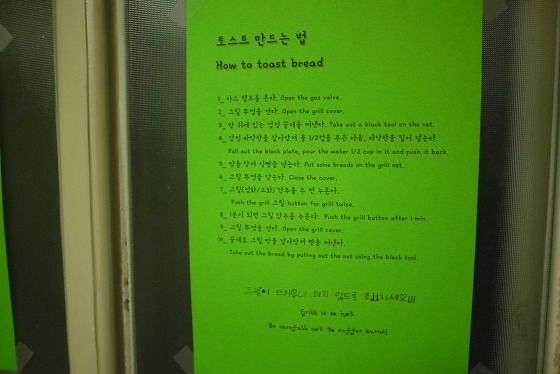 토스트 만드는 법
How to toast bread
1_ 가스 밸브를 온다. Open the gas valve.
2_ 그릴 뚜껑을 연다. Open the grill cover.
3_ 망 위에 있는 검정 집개를 꺼낸다. Take out a black tool on the net.
4_ 검정 바닥판을 잡아당겨 물 1/2컵을 부은 다음, 바닥판을 밀어 넣는다.
Pull out the black plate, pour the water 1/2 cup in it and push it back.
5_ 망을 당겨 식빵을 넣는다. Put some breads on the grill net.
6_ 그릴 뚜껑을 닫는다. Close the cover.
7_ 그릴(점화/소화) 단추를 두 번 누른다.
Push the grill 그릴 button for grill twice.
8_ 1분이 되면 그릴 단추를 누른다. Push the grill button after 1 min.
9_ 그릴 뚜껑을 연다. Open the grill cover.
10_ 집게로 그릴 망을 잡아당겨 빵을 꺼낸다.
Take out the bread by pulling out the net using the black tool.
그릴이 뜨거우니 데지 않도록 조심하세요!!!
Grill is so hot.
Be carefull not to suffer burns!